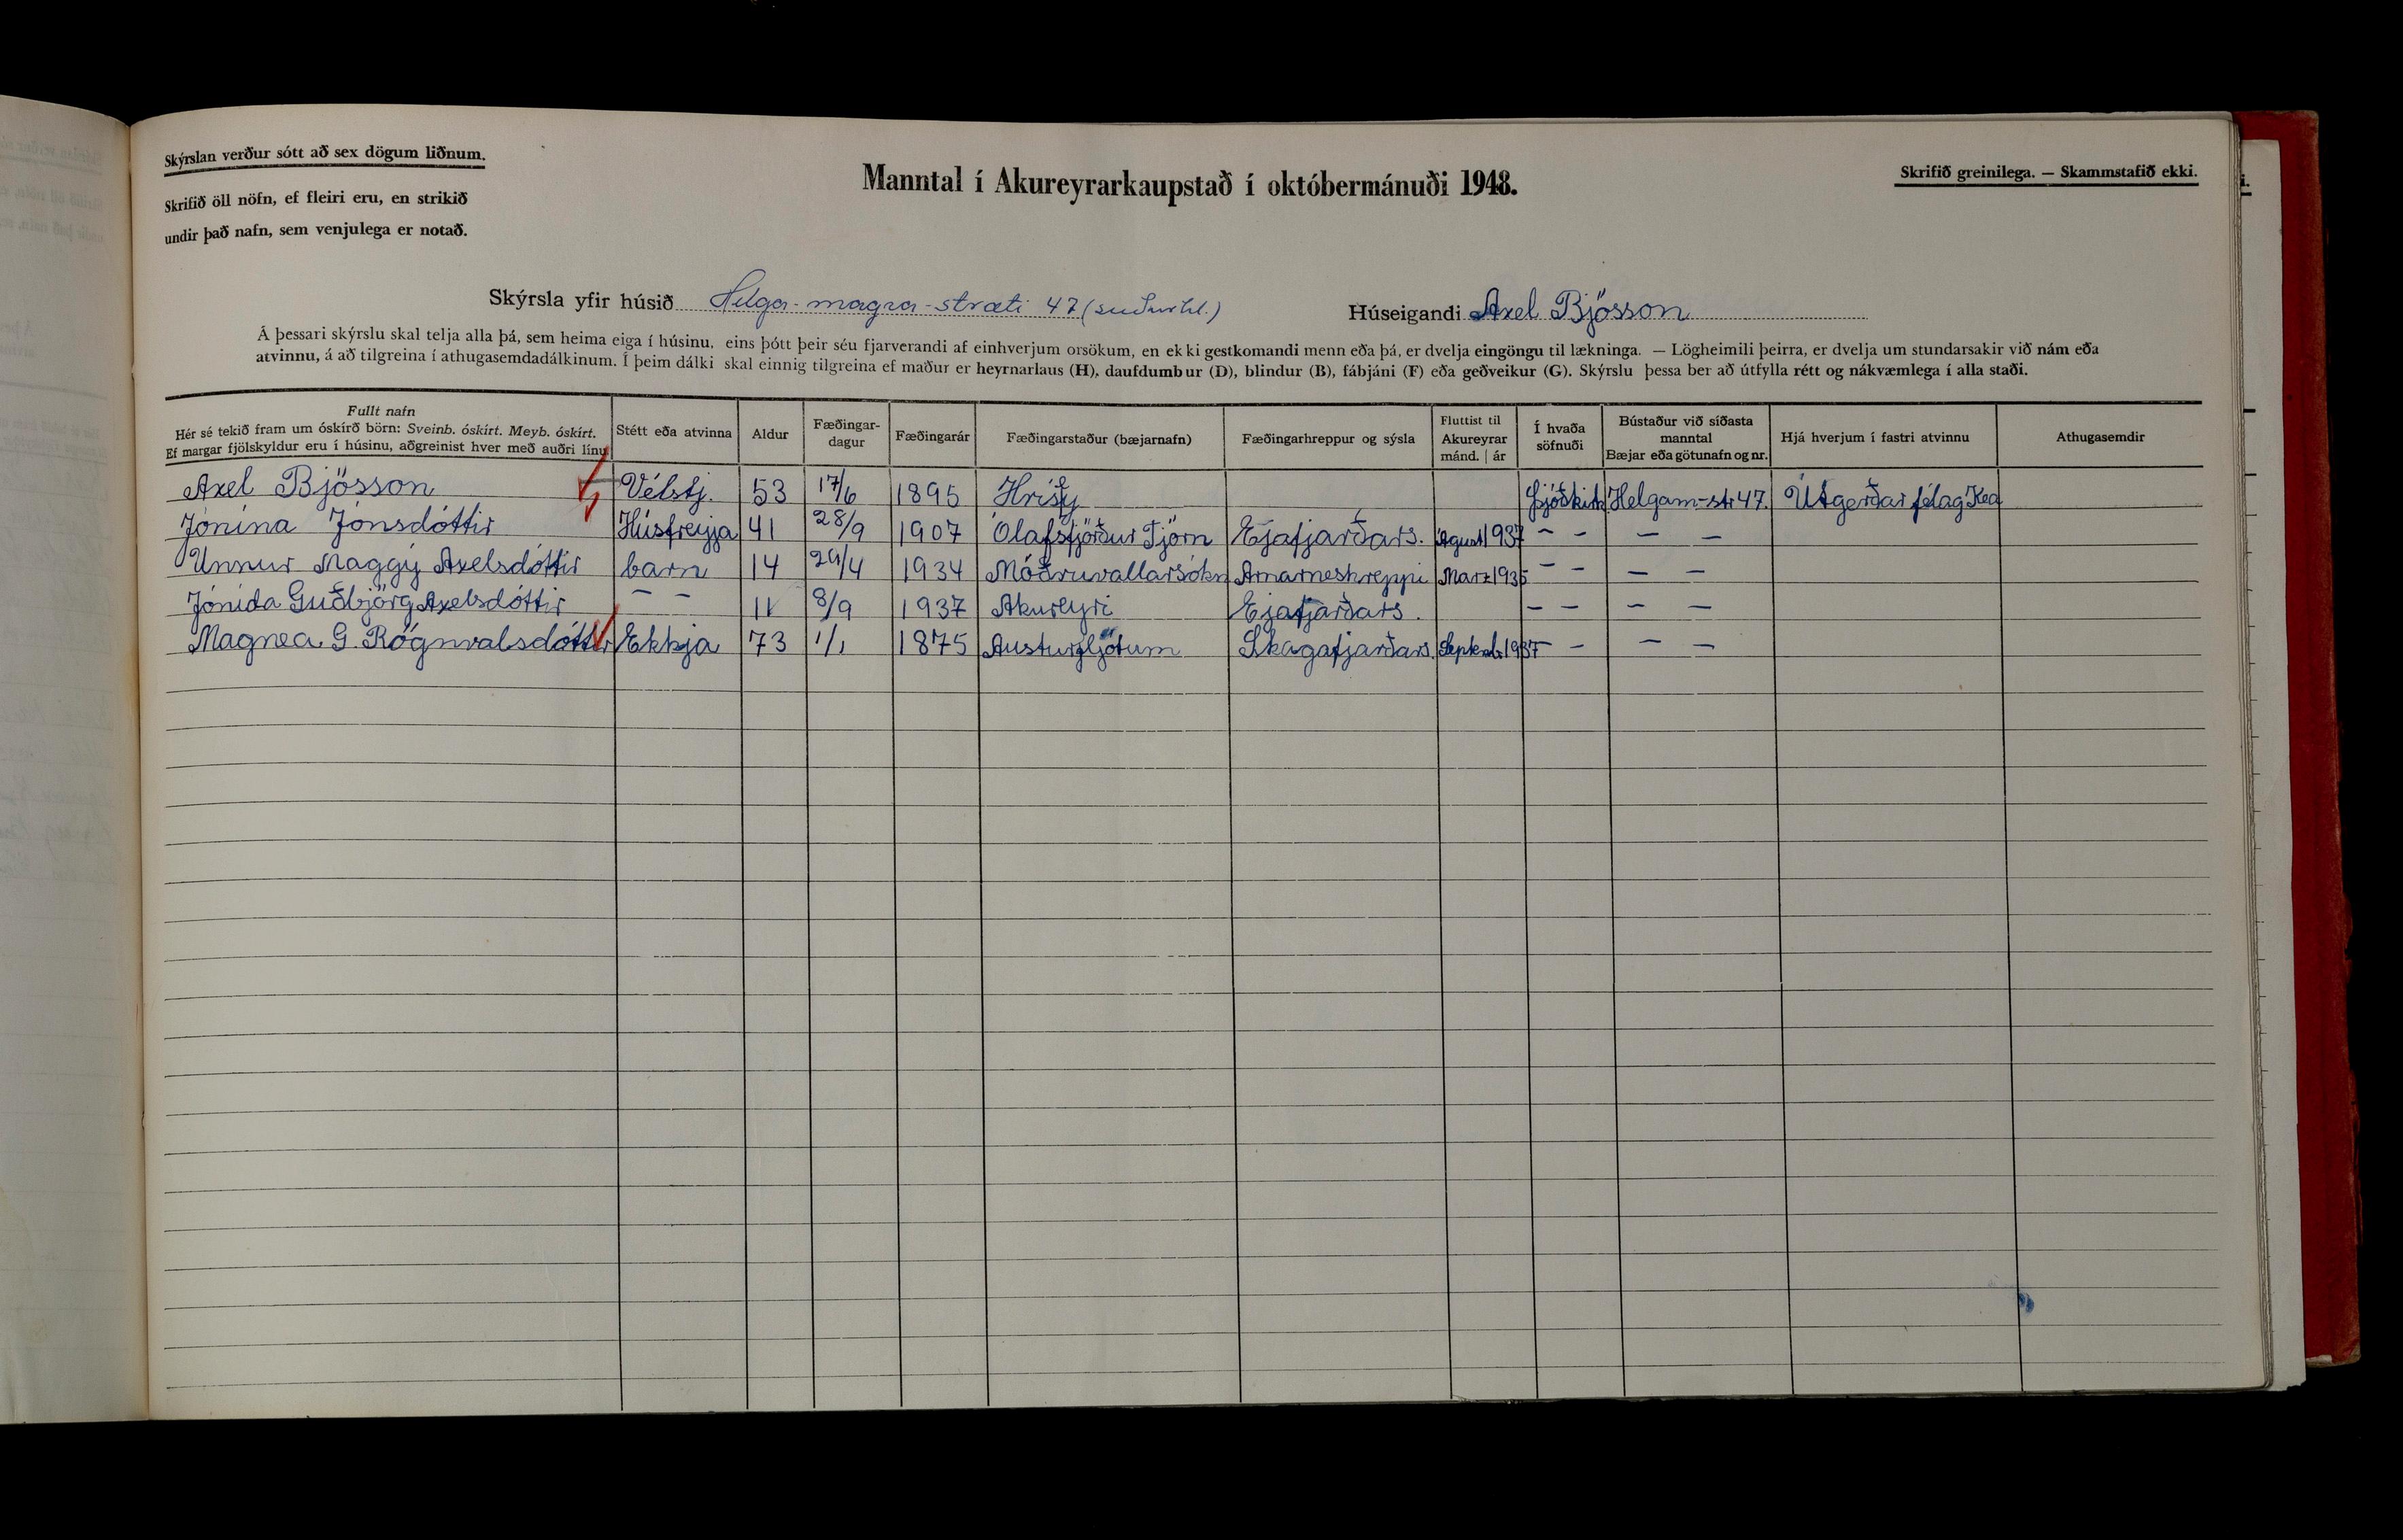 Skýrslan verður sótt að sex dögum liðnum.
Skrifið öll nöfn, ef fleiri eru, en strikið
undir það nafn, sem venjulega er notað.
Manntal í Akureyrarkaupstað í októbermánuði 1948.
Skrifið greinilega. — Skammstafið ekki.
Skýrsla yfir húsið Helga-magra-stræti 47 (suðurhl.) Húseigandi Axel Bjösson
Á þessari skýrslu skal telja alla þá, sem heima eiga í húsinu, eins þótt þeir séu fjarverandi af einhverjum orsökum, en ekki gestkomandi menn eða þá, er dvelja eingöngu til lækninga. — Lögheimili þeirra, er dvelja um stundarsakir við nám eða
atvinnu, á að tilgreina í athugasemdadálkinum. Í þeim dálki skal einnig tilgreina ef maður er heyrnarlaus (H), daufdumbur (D), blindur (B), fábjáni (F) eða geðveikur (G). Skýrslu þessa ber að útfylla rétt og nákvæmlega í alla staði.
Fullt nafn
Hér sé tekið fram um óskírð börn: Sveinb. óskírt. Meyb. óskírt.
Ef margar fjölskyldur eru í húsinu, aðgreinist hver með auðri línu
Stétt eða atvinna
Aldur
Fæðingar-
dagur
Fæðingarár
Fæðingarstaður (bæjarnafn)
Fæðingarhreppur og sýsla
Fluttist til
Akureyrar
mánd. | ár
Í hvaða
söfnuði
Bústaður við síðasta
manntal
Bæjar eða götunafn og nr.
Hjá hverjum í fastri atvinnu
Athugasemdir
Axel Bjösson Vélstj. 53 17/6 1895 Hrísey Þjóðkirk Helgam-str 47. Útgerðarfélag Kea
Jónína Jónsdóttir Húsfreyja 41 28/9 1907 Ólafsfjörður Tjörn Eyjafjarðars. Ágúst 1937 – – – –
Unnur Maggý Axelsdóttir barn 14 29/4 1934 Möðruvallarsókn Arnarneshreppi Marz 1935 – – – –
Jónída Guðbjörg Axelsdóttir – – 11 8/9 1937 Akureyri Eyjafjarðars. – – – –
Magnea G. Rögnvalsdóttir Ekkja 73 1/1 1875 Austurfljótum Skagafjarðars. Septemb. 1937 – – – –